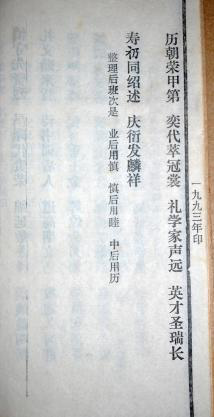 一九九三年印
历朝荣甲第 奕代萃冠裳 礼学家声远 英才圣瑞长
寿礽同绍述 庆衍发麟祥
整理后班次是 业后用慎 慎后用睦 中后用历